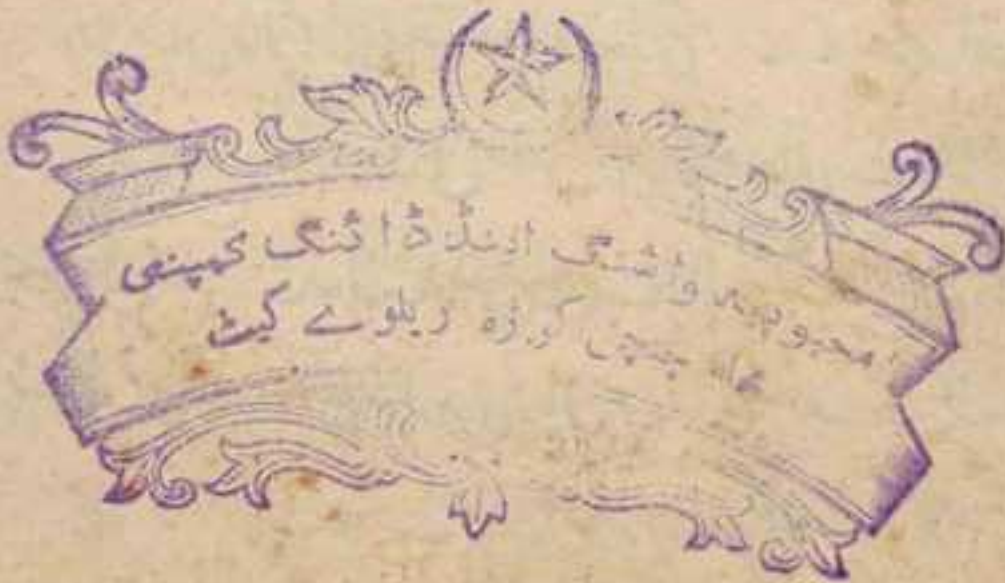 محبوبیہ واشنگ اینڈ ڈائنگ کمپنی
گوڑہ ریلوے گیٹ